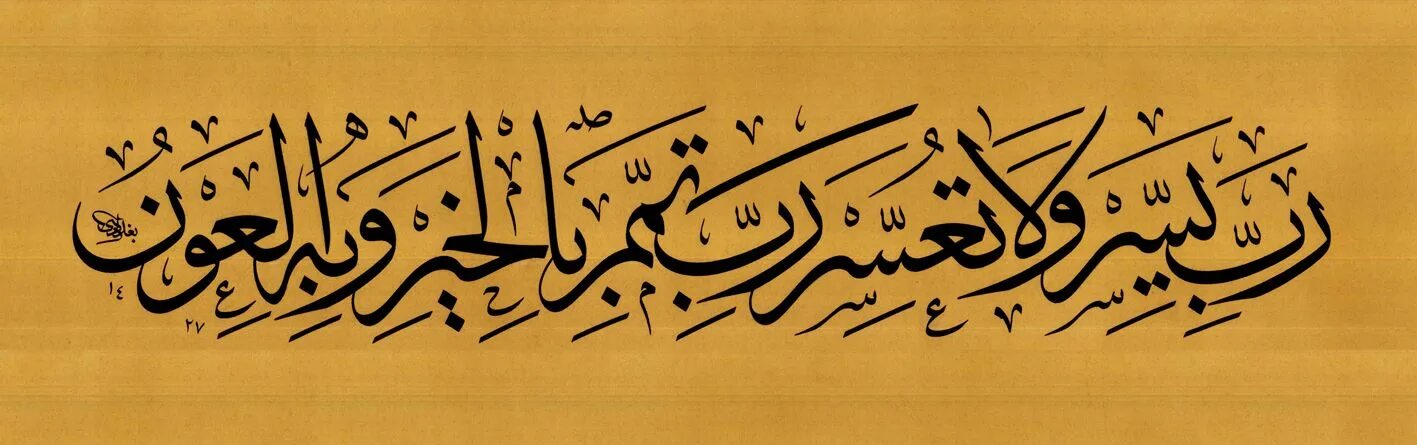 رَبِّ يَسِّرْ وَلَا تُعَسِّرْ رَبِّ تَمِّمْ بِالْخَيْرِ وَبِهِ الْعَوْنُ
١٤
٢٧